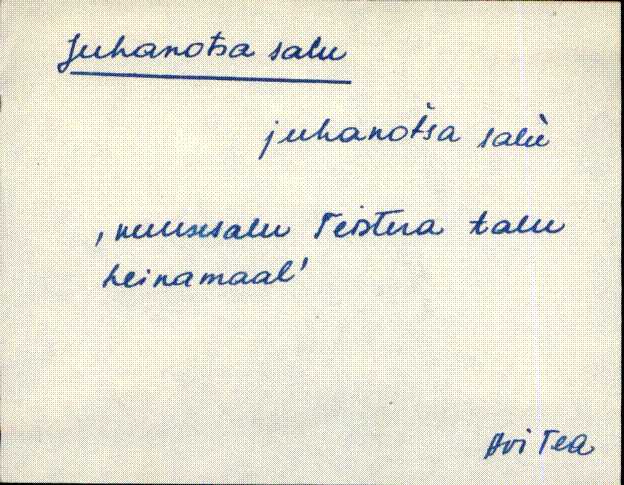 Juhanotsa salu
juhanot̆sa salù
‚kuusesalu Teistera talu
heinamaal'
Avi Tea